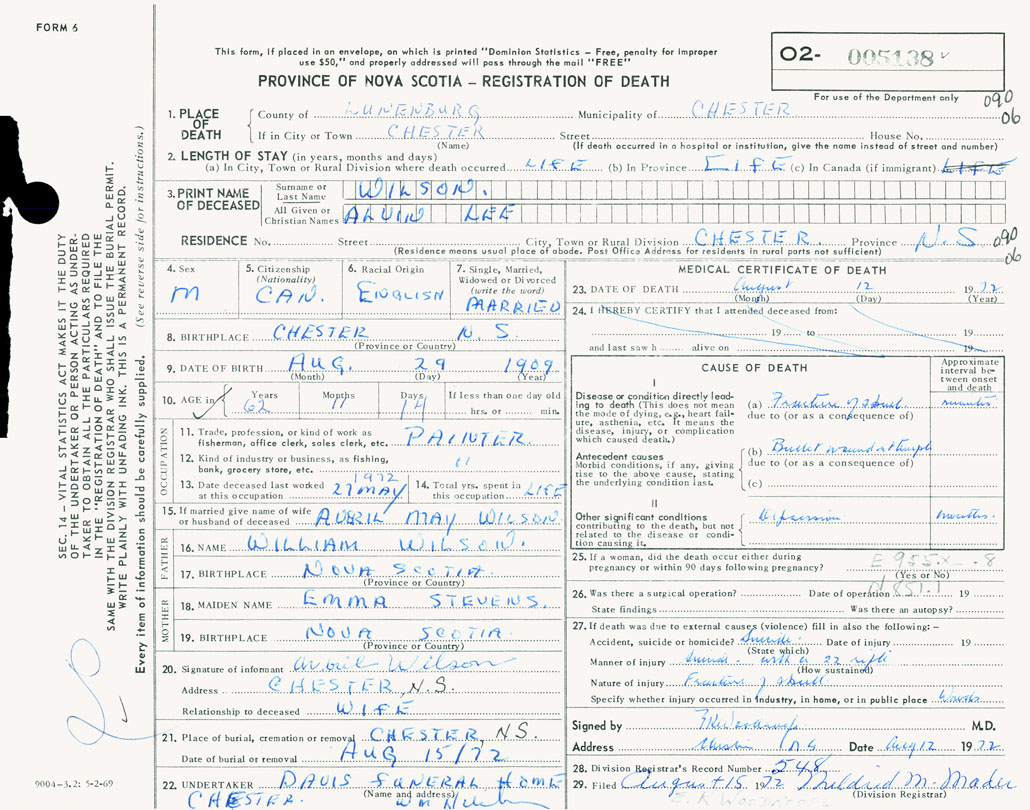 FORM 6
This form, if placed in an envelope, on which is printed "Dominion Statistics – Free, penalty for improper
use $50," and properly addressed will pass through the mail "FREE"
PROVINCE OF NOVA SCOTIA – REGISTRATION OF DEATH
O2- 005138
For use of the Department only
090
06
1. PLACE OF DEATH
County of LUNENBURG Municipality of CHESTER
If in City or Town CHESTER Street House No.
(Name) (If death occurred in a hospital or institution, give the name instead of street and number)
2. LENGTH OF STAY (in years, months and days)
(a) In City, Town or Rural Division where death occurred LIFE (b) In Province LIFE (c) In Canada (if immigrant) LIFE
3. PRINT NAME OF DECEASED
Surname or Last Name WILSON.
All Given or Christian Names ALVIN LEE
RESIDENCE No. Street City, Town or Rural Division CHESTER. Province N.S 090
06
(Residence means usual place of abode. Post Office Address for residents in rural parts not sufficient)
4. Sex
M
5. Citizenship
(Nationality)
CAN.
6. Racial Origin
ENGLISH
7. Single, Married,
Widowed or Divorced
(write the word)
MARRIED
8. BIRTHPLACE CHESTER N.S.
(Province or Country)
9. DATE OF BIRTH AUG. 29 1909
(Month) (Day) (Year)
10. AGE in Years Months Days If less than one day old
62 11 14 hrs. or min.
OCCUPATION
11. Trade, profession, or kind of work as
fisherman, office clerk, sales clerk, etc. PAINTER.
12. Kind of industry or business, as fishing,
bank, grocery store, etc. "
13. Date deceased last worked
at this occupation 1972
27 MAY
14. Total yrs. spent in
this occupation LIFE
15. If married give name of wife
or husband of deceased AVERIL MAY WILSON
FATHER
16. NAME WILLIAM WILSON.
17. BIRTHPLACE NOVA SCOTIA.
(Province or Country)
MOTHER
18. MAIDEN NAME EMMA STEVENS.
19. BIRTHPLACE NOVA SCOTIA
(Province or Country)
20. Signature of informant Wilson
Address CHESTER, N.S.
Relationship to deceased WIFE
21. Place of burial, cremation or removal CHESTER, N.S.
Date of burial or removal AUG 15/72
22. UNDERTAKER DAVIS FUNERAL HOME
(Name and address)
CHESTER.
MEDICAL CERTIFICATE OF DEATH
23. DATE OF DEATH August 12 1972
(Month) (Day) (Year)
24. I HEREBY CERTIFY that I attended deceased from:
19 to 19
and last saw h alive on 19
CAUSE OF DEATH
Approximate
interval be-
tween onset
and death
I
Disease or condition directly lead-
ing to death (This does not
mean the mode of dying, e.g., heart fail-
ure, asthenia, etc. It means the
disease, injury, or complication
which caused death.)
(a) Fracture of skull minutes
due to (or as a consequence of)
Antecedent causes
Morbid conditions, if any, giving
rise to the above cause, stating
the underlying condition last.
(b) Bullet wound
due to (or as a consequence of)
(c)
II
Other significant conditions
contributing to the death, but not
related to the disease or condi-
tion causing it.
Depression months.
25. If a woman, did the death occur either during
pregnancy or within 90 days following pregnancy?
(Yes or No)
E 955.X .8
N 851.1
26. Was there a surgical operation? Date of operation 19
State findings Was there an autopsy?
27. If death was due to external causes (violence) fill in also the following: –
Accident, suicide or homicide? Suicide. Date of injury 19
(State which)
Manner of injury Suicide – with a 22 rifle
(How sustained)
Nature of injury Fracture of skull
Specify whether injury occurred in industry, in home, or in public place Woods
Signed by M.D.
Address Chester N.S. Date Aug 12 1972
28. Division Registrar's Record Number 548
29. Filed August 15 1972 Mildred M. Mader
(Division Registrar)
SEC. 14 – VITAL STATISTICS ACT MAKES IT THE DUTY
OF THE UNDERTAKER OR PERSON ACTING AS UNDER-
TAKER TO OBTAIN ALL THE PARTICULARS REQUIRED
IN THE "REGISTRATION OF DEATH" AND TO FILE THE
SAME WITH THE DIVISION REGISTRAR WHO SHALL ISSUE THE BURIAL PERMIT.
WRITE PLAINLY WITH UNFADING INK. THIS IS A PERMANENT RECORD.
Every item of information should be carefully supplied. (See reverse side for instructions.)
9004-3,2: 5-2-69